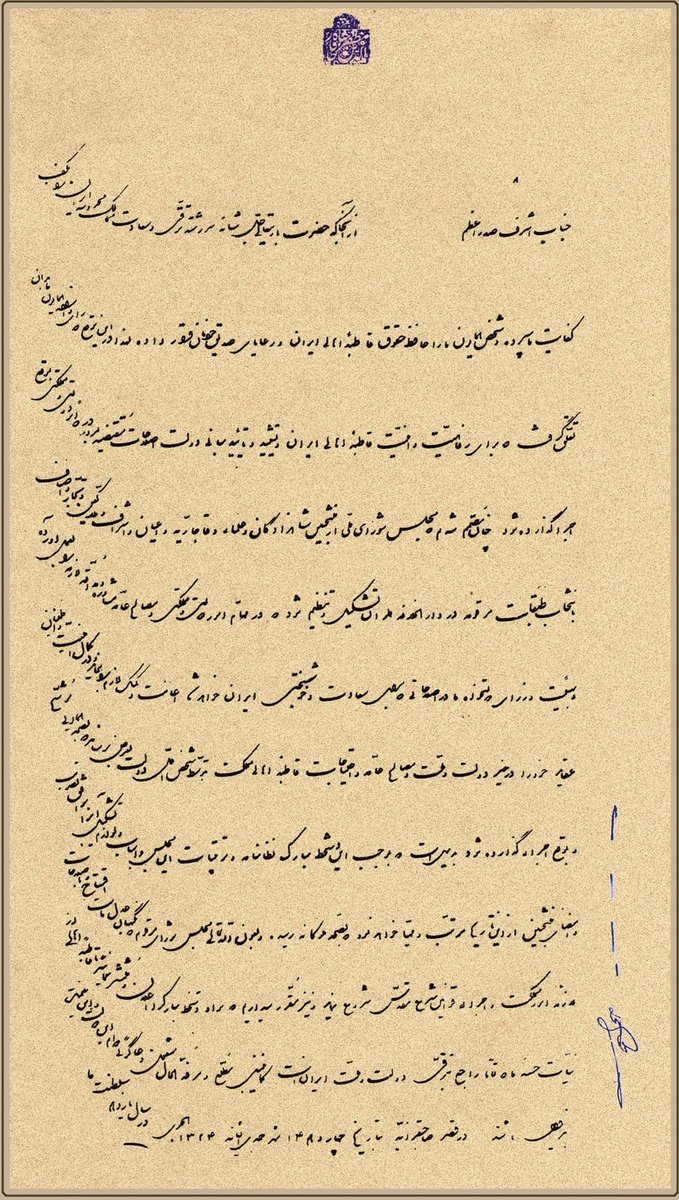 جناب اشرف صدراعظم از آنجا که حضرت باریتعالی جل شانه سررشته ترقی و سعادت ممالک محروسه ایران را بکف
کفایت ما سپرده و شخص همایون ما را حافظ حقوق قاطبهٔ اهالی ایران و رعایای صدیق خودمان قرار داده لهذا در این موقع که رای و اراده همایون ما بدان
تعلق گرفت که برای رفاهیت و امنیت قاطبهٔ اهالی ایران و تشیید و تأیید مبانی دولت اصلاحات مقتضیه بمرور در دوائر دولتی و مملکتی بموقع
اجرا گذارده شود چنان مصمم شدیم که مجلس شورای ملی از منتخبین شاهزادگان و علماء و قاجاریه و اعیان و اشراف و ملاکین و تجار و اصناف
بانتخاب طبقات مرقومه در دارالخلافه طهران تشکیل و تنظیم شود که در مهام امور دولتی و مملکتی و مصالح عامه مشاوره و مداقه لازمه را بعمل آورده
و بهیئت وزرای دولتخواه ما در اصلاحاتی که برای سعادت و خوشبختی ایران خواهد شد اعانت و کمک لازم را بنماید و در کمال امنیت و اطمینان
عقاید خود را در خیر دولت و ملت و مصالح عامه و احتیاجات قاطبهٔ اهالی مملکت بتوسط شخص اول دولت بعرض برساند که بصحه همایونی موشح
و بموقع اجراء گذارده شود بدیهی است که بموجب این دستخط مبارک نظامنامه و ترتیبات این مجلس و اسباب و لوازم تشکیل آنرا موافق تصویب
و امضای منتخبین از این تاریخ مرتب و مهیا خواهد نمود که بصحه ملوکانه رسیده و بعون الله تعالی مجلس شورای مرقوم که نگهبان عدل ماست افتتاح و باصلاحات
لازمه امور مملکت و اجراء قوانین شرع مقدس شروع نماید و نیز مقرر میداریم که سواد دستخط مبارک را اعلان و منتشر نمایند تا قاطبه اهالی از
نیات حسنه ما که تماما راجع بترقی دولت و ملت ایران است کماینبغی مطلع و مرفه الحال مشغول دعاگوئی دوام این دولت و این نعمت
بیزوال باشند در قصر صاحبقرانیه بتاریخ چهاردهم شهر جمادی الثانیه ۱۳۲۴ هجری در سال یازدهم سلطنت ما